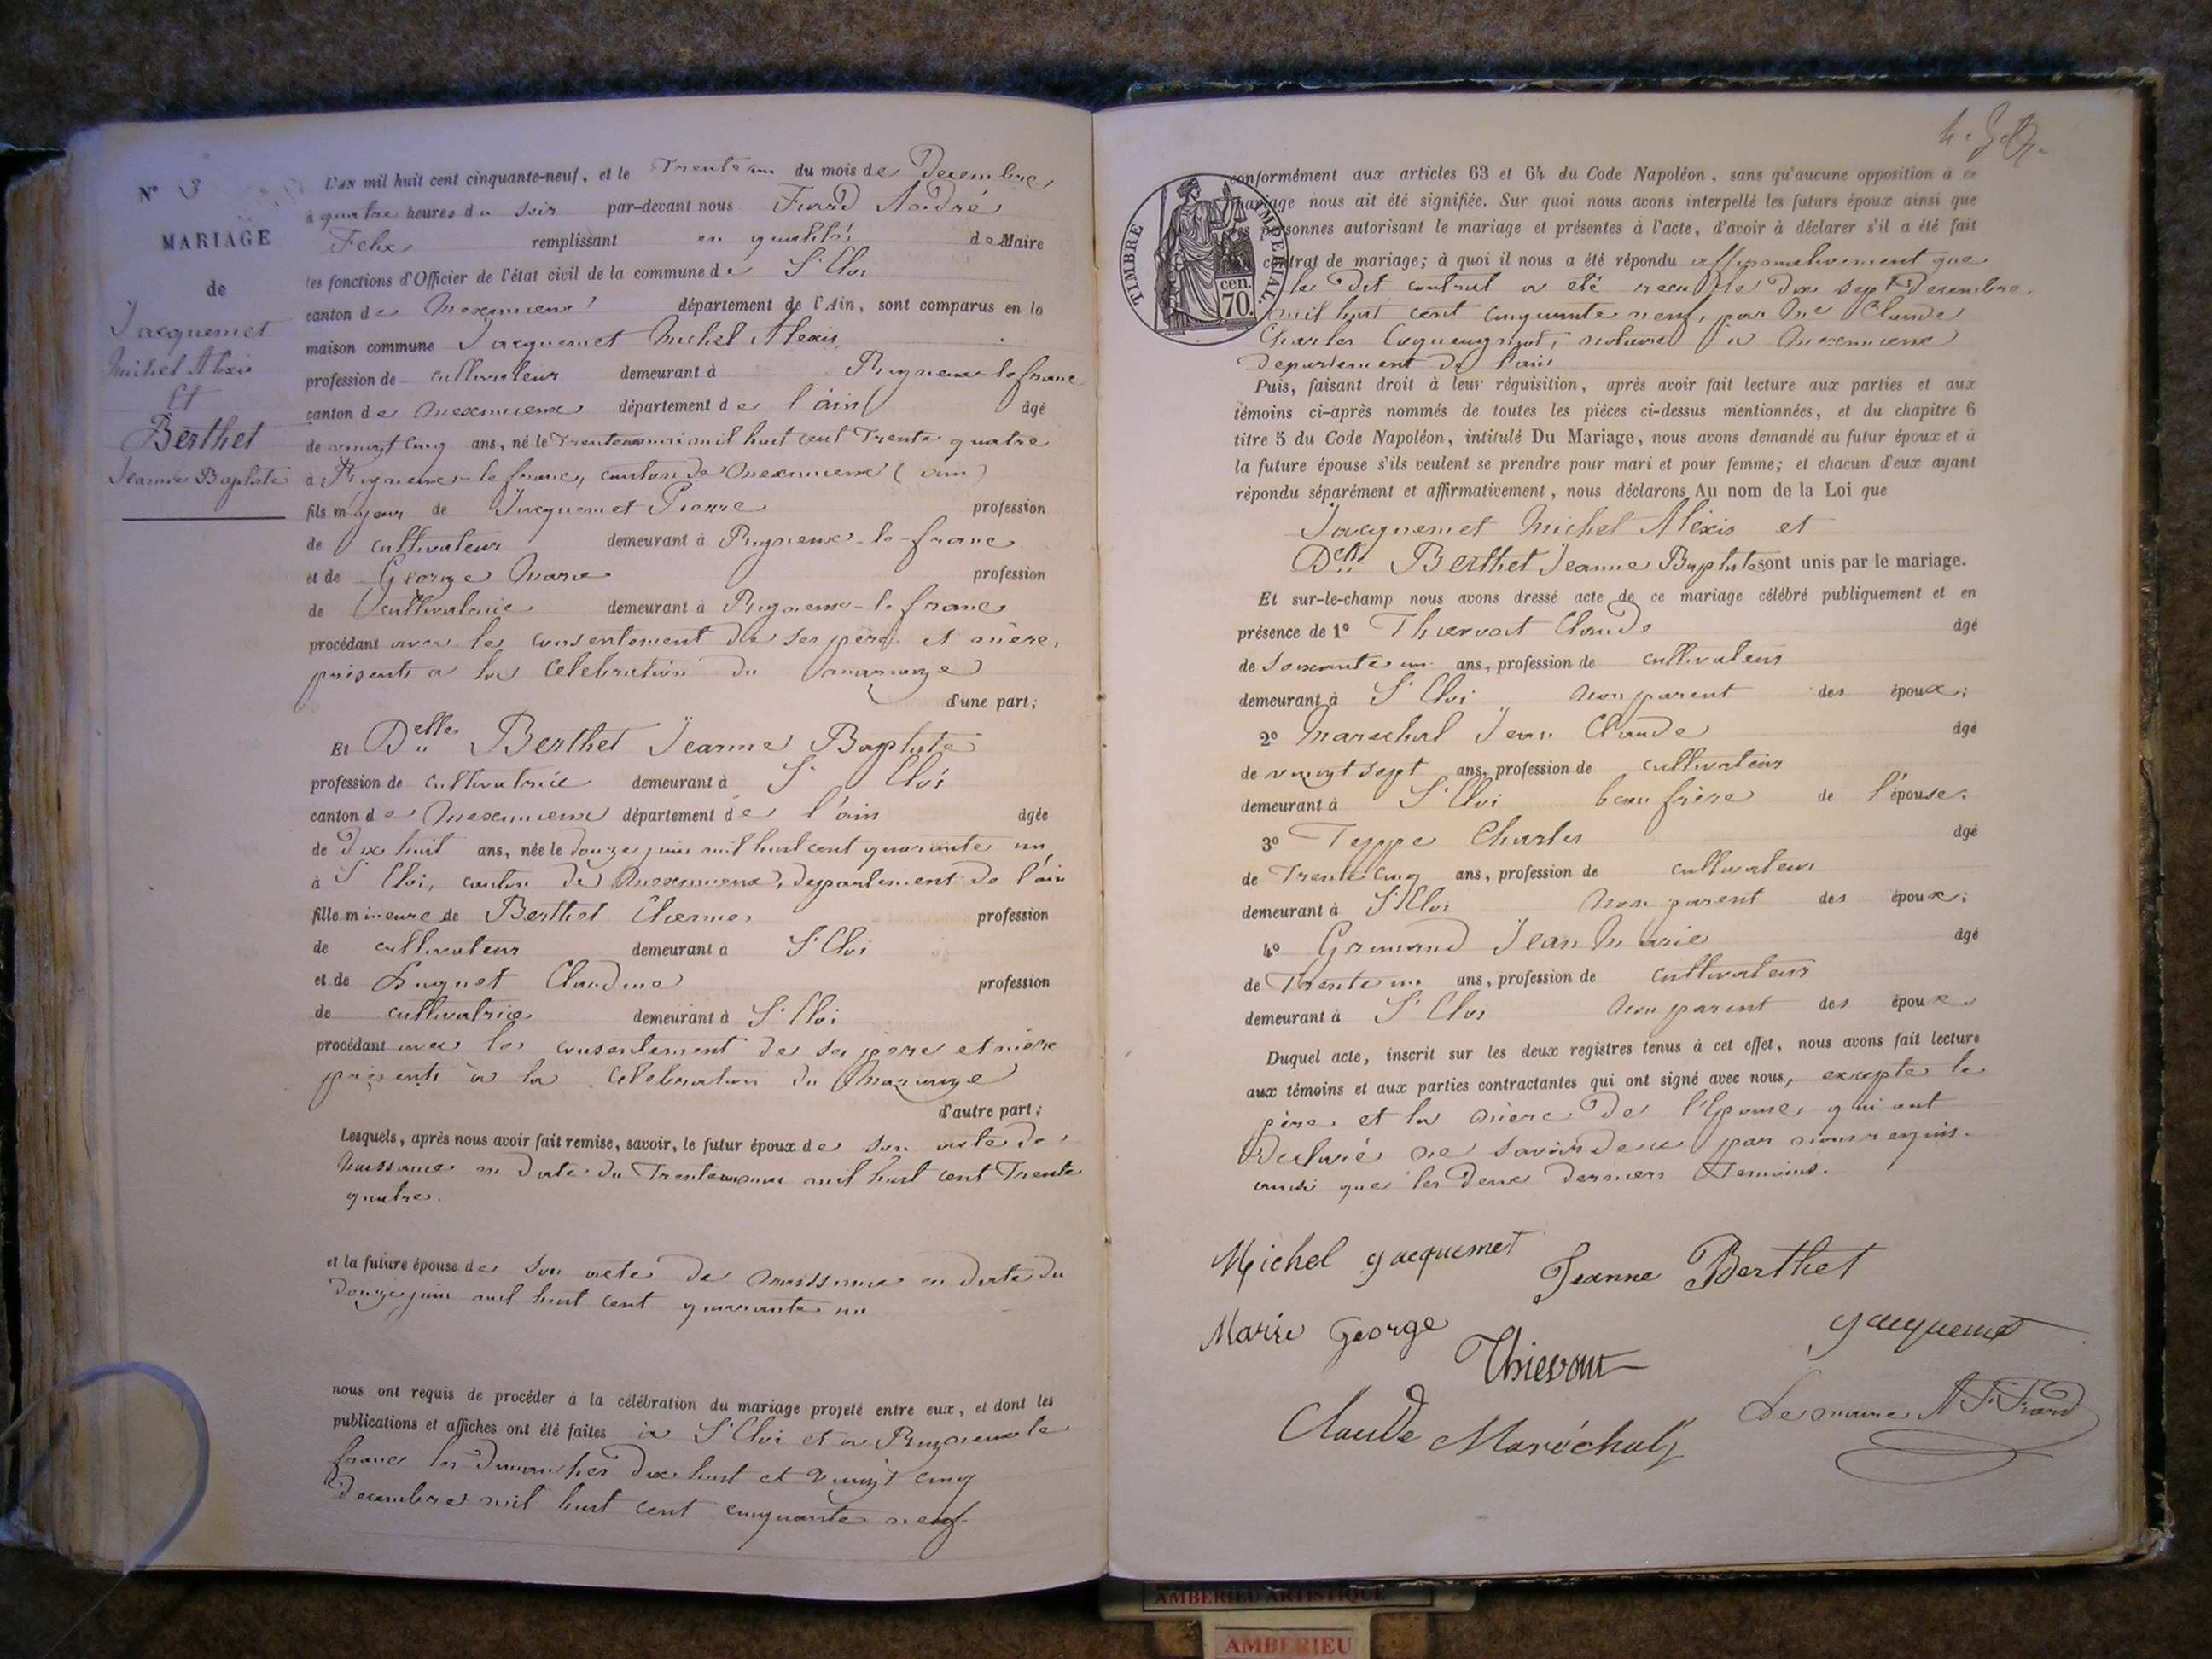 N° 3
MARIAGE
de
Jacquemet
Michel Alexis
Et
Berthet
Jeanne Baptiste
L'AN mil huit cent cinquante-neuf, et le Trente un du mois de Decembre
à quatre heures du soir par-devant nous Fiard André
Felix remplissant en qualité de Maire
les fonctions d'Officier de l'état civil de la commune de St Eloi
canton de Meximieux département de l'Ain, sont comparus en la
maison commune Jacquemet Michel Alexis
profession de cultivateur demeurant à Rigneux-le franc
canton de Meximieux département de l'ain âgé
de vingt cinq ans, né le Trente un mai mil huit cent Trente quatre
à Rigneux-le franc, canton de Meximieux (ain)
fils majeur de Jacquemet Pierre profession
de cultivateur demeurant à Rigneux-le-franc
et de George Marie profession
de cultivatrice demeurant à Rigneux-le franc
procédant avec le consentement de ses père et mère,
présents a la celebration du mariage
d'une part;
Et Delle Berthet Jeanne Baptiste
profession de cultivatrice demeurant à St Eloi
canton de Meximieux département de l'ain âgée
de Dix huit ans, née le douze juin mil huit cent quarante un
à St Eloi, canton de Meximieux, departement de l'ain
fille mineure de Berthet Etienne profession
de cultivateur demeurant à St Eloi
et de Huguet Claudine profession
de cultivatrice demeurant à St Eloi
procédant avec le consentement de ses pere et mère
présents à la celebration du Mariage
d'autre part;
Lesquels, après nous avoir fait remise, savoir, le futur époux de son acte de
naissance en date du Trente un mai mil huit cent Trente
quatre.
et la future épouse de son acte de naissance en date du
douze juin mil huit cent quarante un
nous ont requis de procéder à la célébration du mariage projeté entre eux, et dont les
publications et affiches ont été faites à St Eloi et a Rigneux le
franc les dimanches dix huit et vingt cinq
decembre mil huit cent cinquante neuf
TIMBRE IMPERIAL.
cen.
70.
conformément aux articles 63 et 64 du Code Napoléon, sans qu'aucune opposition à ce
mariage nous ait été signifiée. Sur quoi nous avons interpellé les futurs époux ainsi que
les personnes autorisant le mariage et présentes à l'acte, d'avoir à déclarer s'il a été fait
contrat de mariage; à quoi il nous a été répondu affirmativement que
le dit contrat a été recu le dix sept Decembre
mil huit cent cinquante neuf, par Me Claude
Charles notaire à Meximieux
departement de l'ain
Puis, faisant droit à leur réquisition, après avoir fait lecture aux parties et aux
témoins ci-après nommés de toutes les pièces ci-dessus mentionnées, et du chapitre 6
titre 5 du Code Napoléon, intitulé Du Mariage, nous avons demandé au futur époux et à
la future épouse s'ils veulent se prendre pour mari et pour femme; et chacun d'eux ayant
répondu séparément et affirmativement, nous déclarons Au nom de la Loi que
Jacquemet Michel Alexis et
Delle Berthet Jeanne Baptiste sont unis par le mariage.
Et sur-le-champ nous avons dressé acte de ce mariage célébré publiquement et en
présence de 1° Thievont Claude âgé
de soixante un ans, profession de cultivateur
demeurant à St Eloi non parent des époux;
2° Marechal Jean Claude âgé
de vingt sept ans, profession de cultivateur
demeurant à St Eloi beau frère de l'épouse;
3° Teppe Charles âgé
de Trente cinq ans, profession de cultivateur
demeurant à St Eloi non parent des époux;
4° Jean Marie âgé
de Trente un ans, profession de cultivateur
demeurant à St Eloi non parent des époux
Duquel acte, inscrit sur les deux registres tenus à cet effet, nous avons fait lecture
aux témoins et aux parties contractantes qui ont signé avec nous, excepte le
père et la mère de l'Epouse qui ont
déclaré ne savoir de ce par nous requis.
ainsi que les deux derniers temoins.
Michel Jacquemet
Jeanne Berthet
Marie George
Jacquemet
Thievont
Le maire A F Fiard
Claude Maréchal
AMBERIEU ARTISTIQUE
AMBERIEU